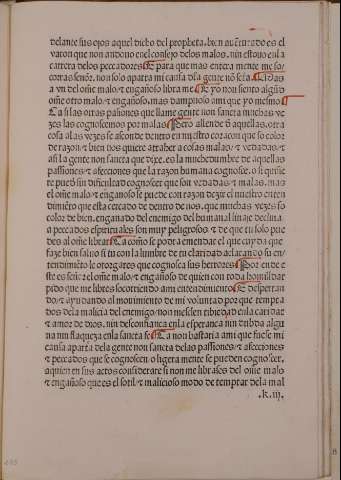 delante sus ojos aquel dicho del propheta. bien auēturado es el
varon que no andouo en el consejo delos malos. nin estouo en la
carrera delos peccadores E para que mas entera mente me so/
corras señor. non solo aparta mi causa dela gente nō sctā
a vn del ome malo & engañoso libra me. E yo non siento algūd
ome otro malo & engañoso. mas dampnoso ami que yo mesmo
Ca si las otras passiones que llame gente non sancta muchas ve
zes las cognoscemos por malas. Pero allende d aquellas. otra
cosa a las vezes se asconde dentro en nuestro coraçon que so color
de razon & bien nos quiere atraher a cosas malas & vedadas. &
assi la gente non sancta que dixe. es la muchedumbre de aquellas
passiones & afecciones que la razon humana cognosce. o si quisie
re puede sin dificultad cognoscer que son vedadas & malas. mas
el ome malo & engañoso se puede con razon dezir el nuestro enten
dimiēto que esta cercado de dentro de nos. que muchas vezes so
color de bien. enganado del enemigo del humanal linaje declina
a peccados espirituales son muy peligrosos. & de que tu solo pue
des al ome librar Ca como se podra emendar el que cuyda que
faze bien saluo si tu con la lumbre de tu claridad aclarando su en
tendimiēto le otorgares que cognosca sus herrores Por ende e
ste es señor el ome malo & engañoso de quien con toda homildat
pido que me libres socorriendo ami entendimiento E despertan
do & ayudando al mouimiento de mi voluntad por que tempta
dos dela malicia del enemigo non mesclen tibiedad en la caridat
& amor de dios. nin desconfiança en la esperança nin dubda algu
na nin flaqueza en la sancta fe Ca non bastaria ami que fuese mi
causa aparta dela gente non sancta delas passiones & afecciones
& peccados que se cognoscen. o ligera mente se pueden cognoscer.
a quien en sus actos considerare si non me librases del ome malo
& engañoso que es el sotil & malicioso modo de temptar dela mal
.k.iij.